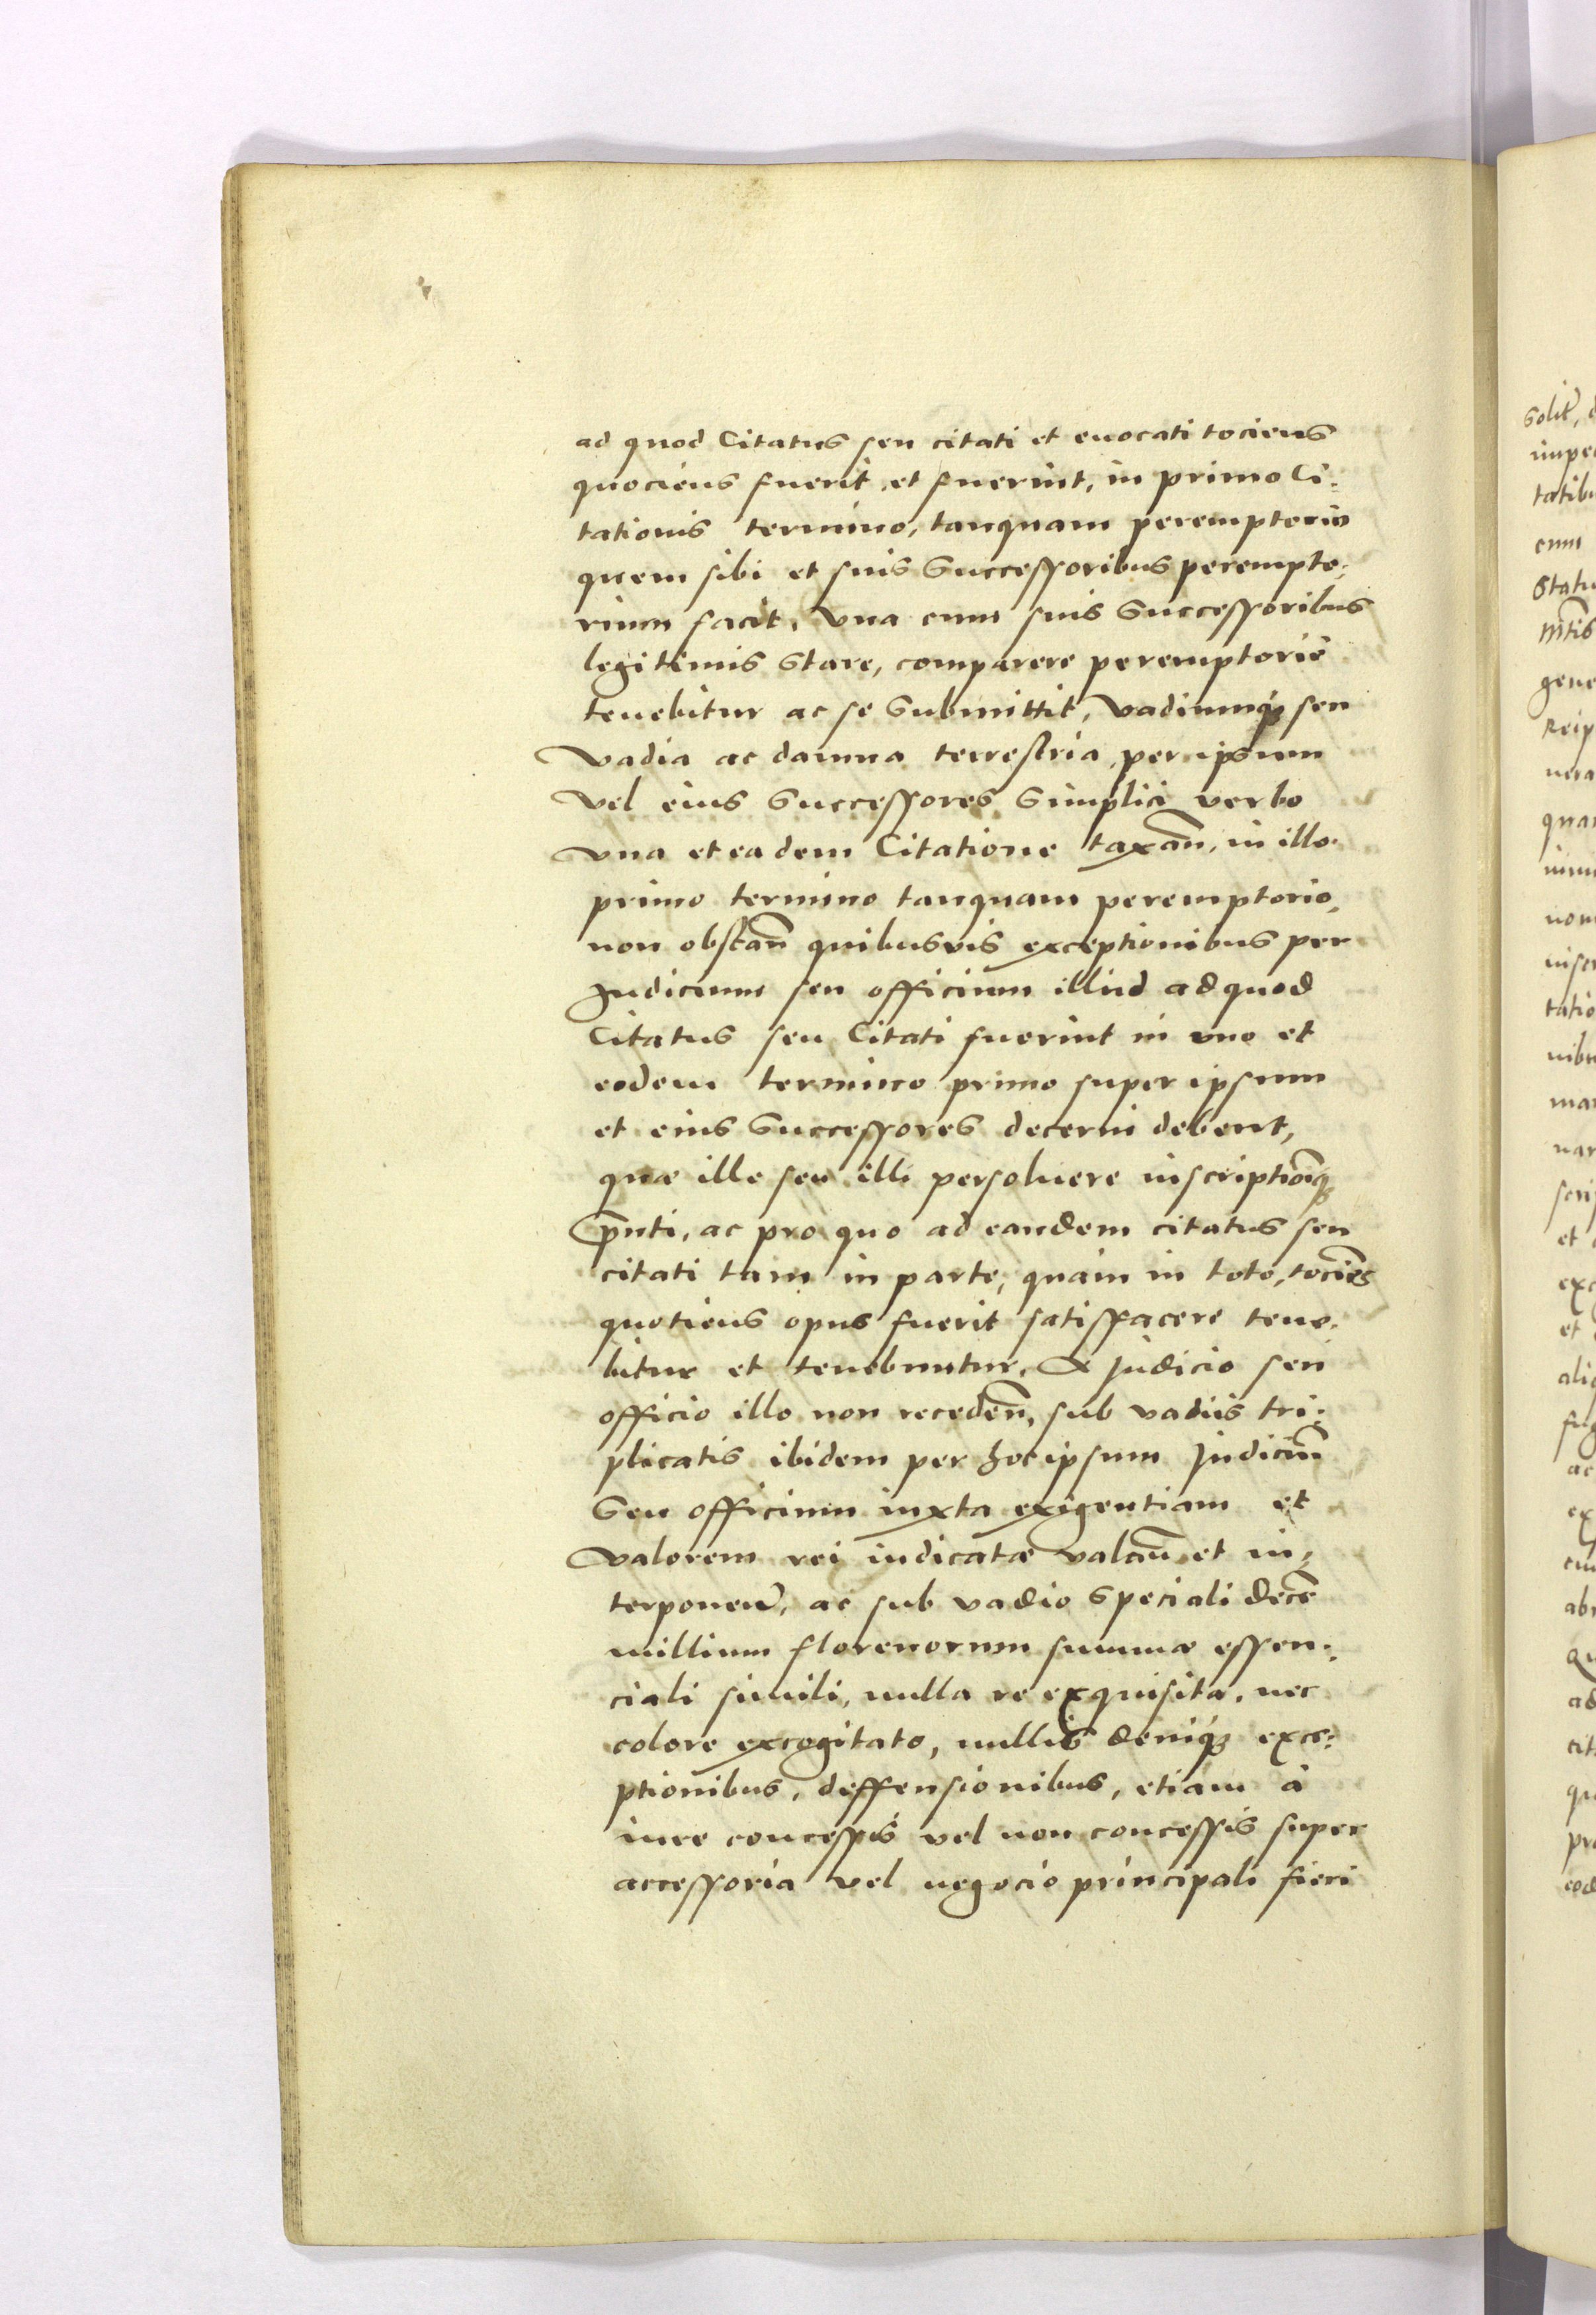 ad quod Citatus seu citati et euocati tociens
quociens fuerit, et fuerint, in primo Ci:
tationis termino, tanquam peremptorio
quem sibi et suis Successoribus perempto:
rium facit, vna cum suis Successoribus
legitimis stare, comparere peremptorié
tenebitur ac se submittit, vadiumq́ue seu
vadia ac damna terrestria per ipsum
vel eius Successores simplici verbo
vna et eadem Citatione taxan̄, in illo
primo termino tanquam peremptorio,
non obstan̄ quibusvis exceptionibus per
Judicium seu officium illud ad quod
Citatus seu Citati fuerint in vno et
eodem termino primo super ipsum
et eius Successores decerni debent,
quæ ille seu illi persoluere inscriptioniq́ue
pn̄ti, ac pro quo ad eandem citatus seu
citati tam in parte, quàm in toto, tociēs
quotiens opus fuerit satisfacere tene:
bitur et tenebuntur, A Judicio seu
officio illo non receden̄, sub vadiis tri:
plicatis ibidem per hoc ipsum Judiciū
seu officium iuxta exigentiam et
valorem rei iudicatæ valan̄ et in:
terponen̄, ac sub vadio speciali decē
millium florenorum summæ essen:
ciali simili, nulla re exquisita, nec
colore excogitato, nullis deniq́ue exce:
ptionibus, deffensionibus, etiam à
iure concessis vel non concessis super
accessoria vel negocio principali fieri
solit̄,
cum
et
et
ac